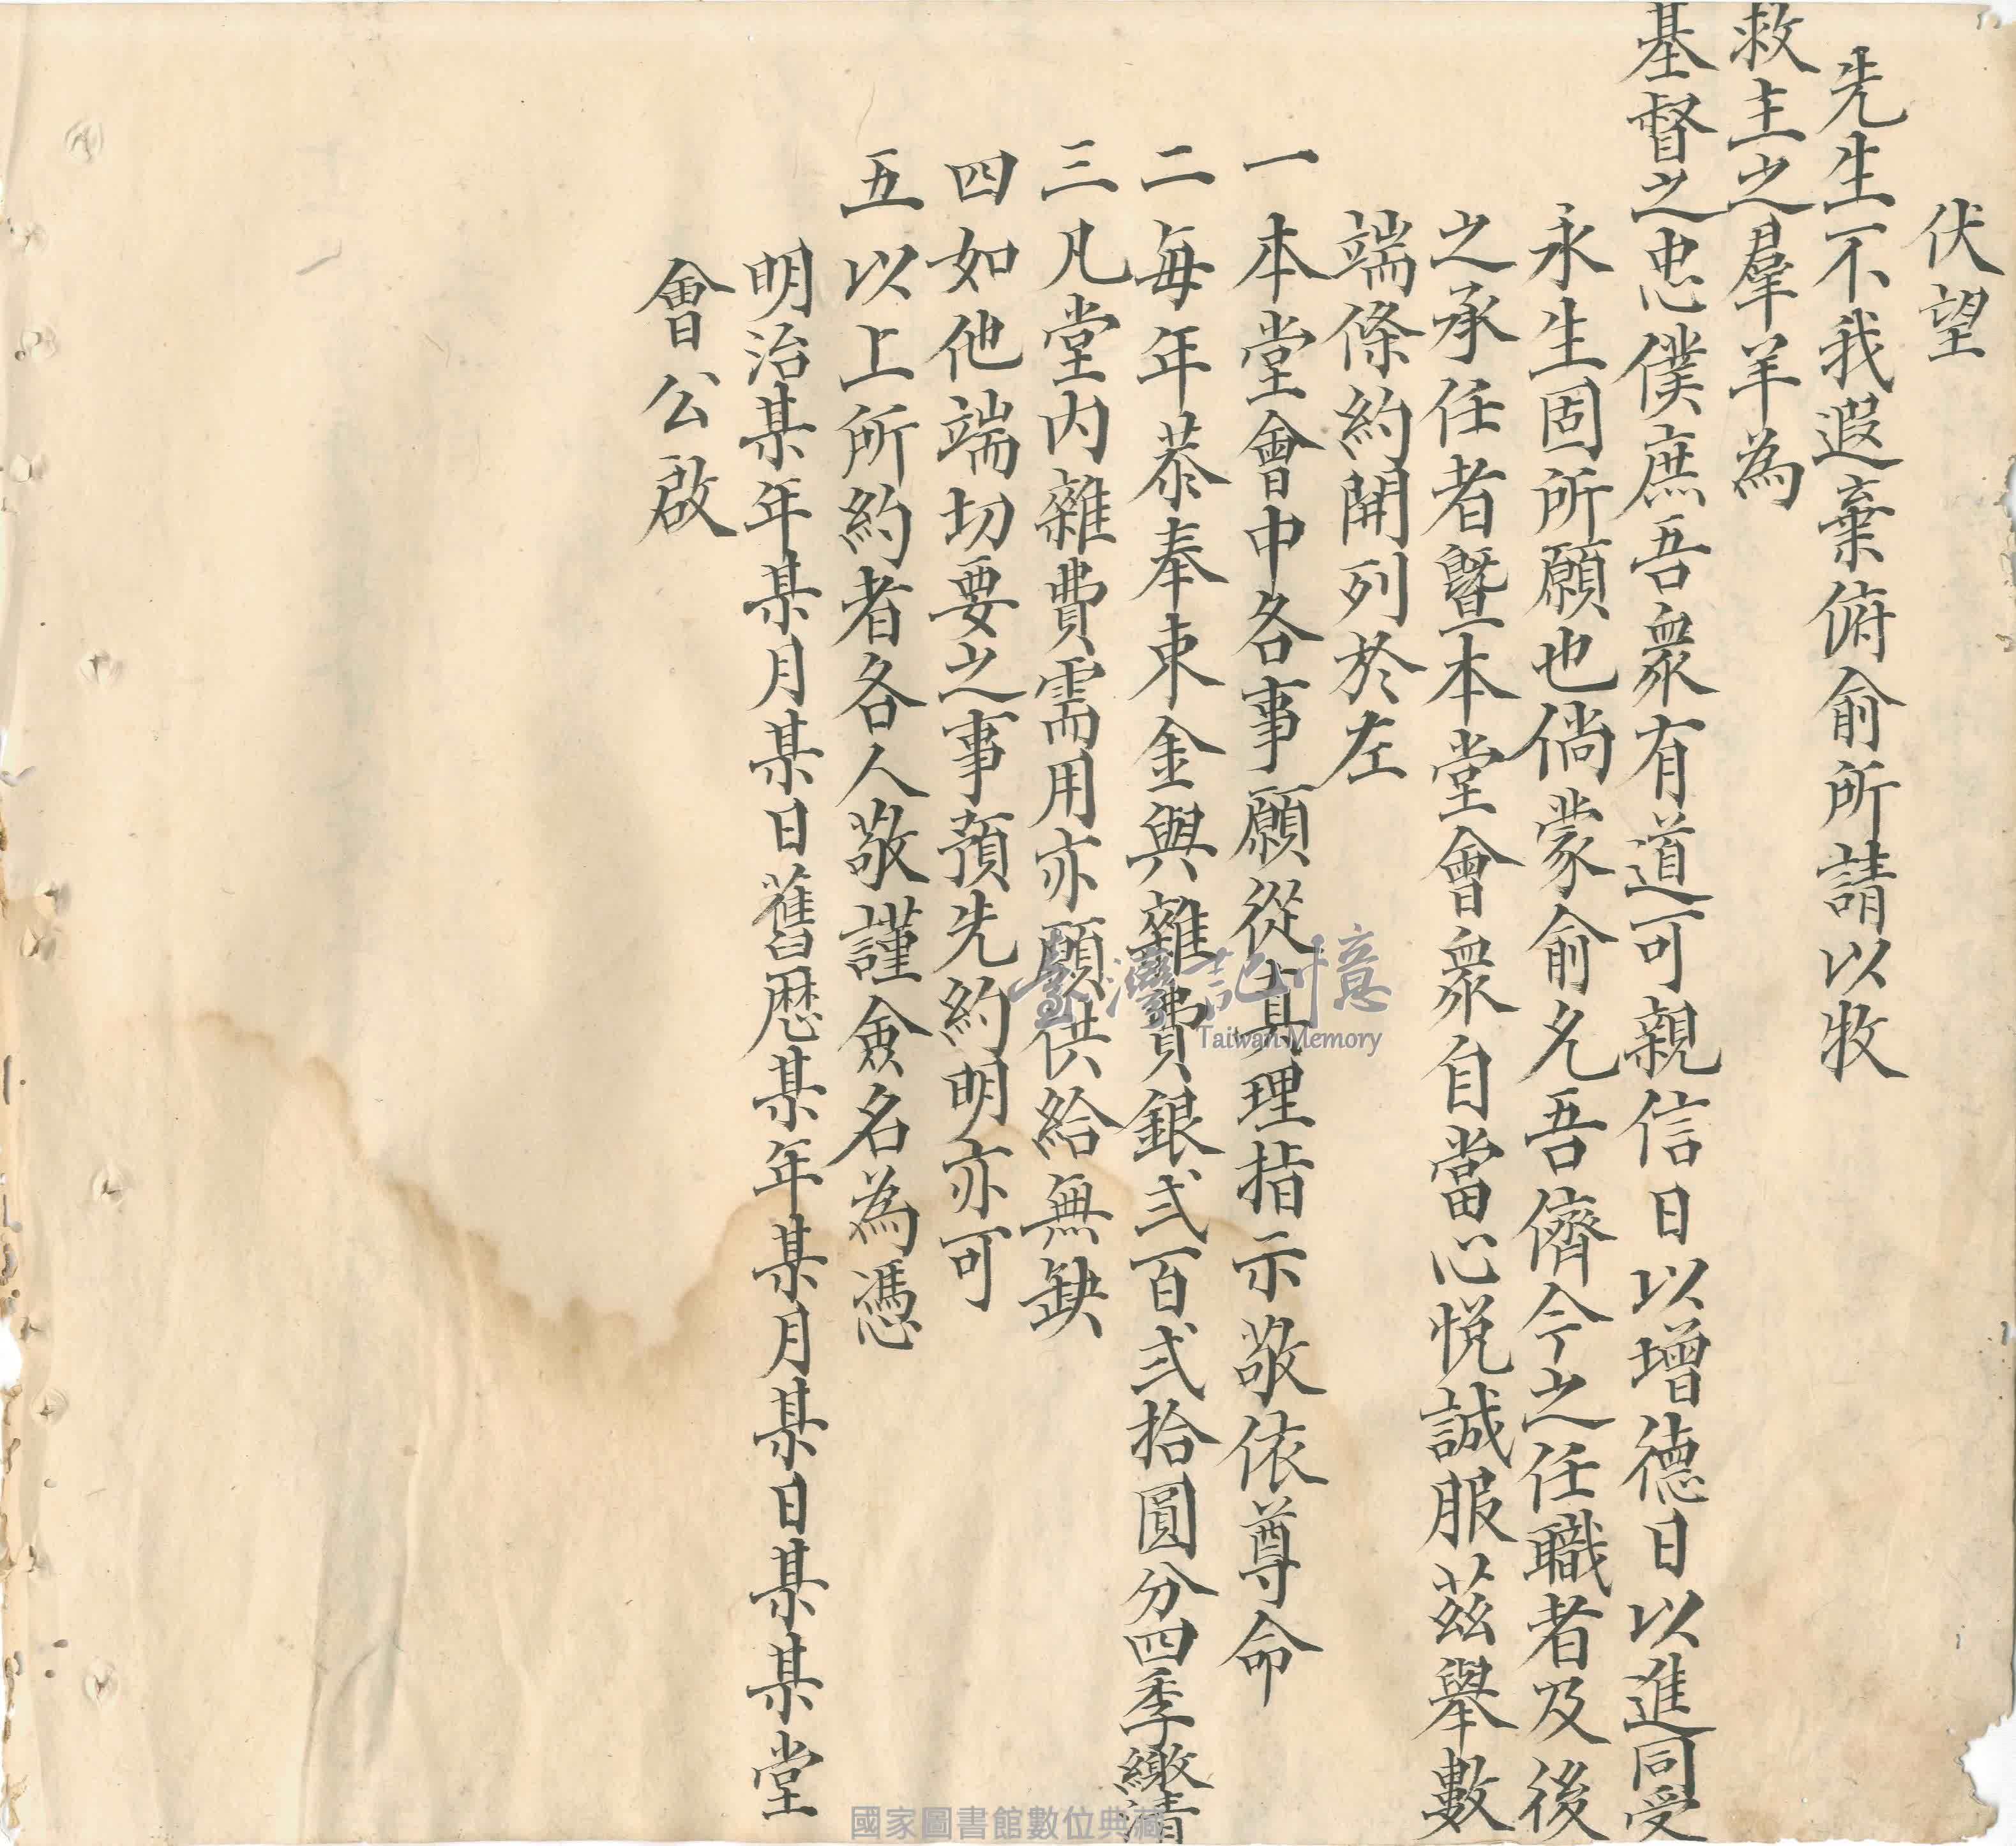 伏望
先生不我遐棄俯俞所請以牧
救主之羣羊為
基督之忠僕庶吾衆有道可親信日以增德日以進同受
永生固所願也倘蒙俞允吾儕今之任職者及後
之承任者暨本堂會衆自當心悅誠服茲舉數
端條約開列於左
一 本堂會中各事願從真理指示敬依尊命
二 每年恭奉束金與雜費銀弍百弍拾圓分四季繳清
三 凡堂內雜費需用亦願供給無缺
四 如他端切要之事預先約明亦可
五 以上所約者各人敬謹僉名為憑
明治某年某月某日舊歷某年某月某日某某堂
會公啟
臺灣記憶
Taiwan Memory
國家圖書館數位典藏